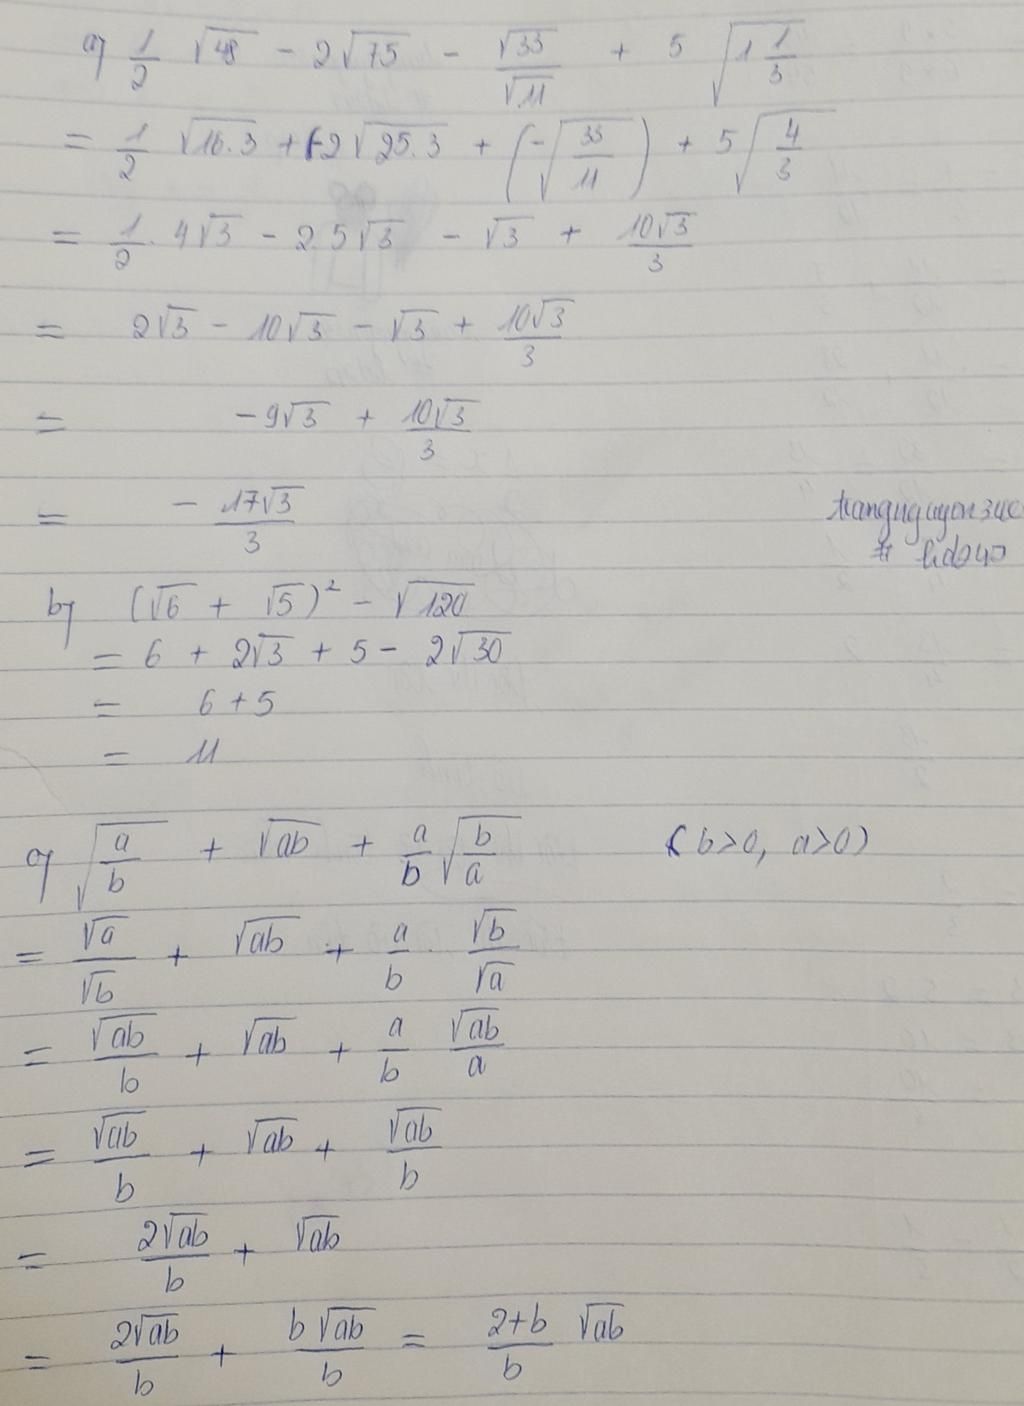 a) 1/2 √48 - 2√75 - √33/√11 + 5 √(1 1/3)
= 1/2 √16.3 + (-2√25.3 + (-√(33/11)) + 5√(4/3)
= 1/2 . 4√3 - 2.5√3 - √3 + 10√3/3
= 2√3 - 10√3 - √3 + 10√3/3
= -9√3 + 10√3/3
= - 17√3/3
b) (√6 + √5)² - √120
= 6 + 2√3 + 5 - 2√30
= 6 + 5
= 11
c) √(a/b) + √ab + a/b √(b/a) (b>0, a>0)
= √a/√b + √ab + a/b . √b/√a
= √ab/b + √ab + a/b √ab/a
= √ab/b + √ab + √ab/b
= 2√ab/b + √ab
= 2√ab/b + b√ab/b = 2+b/b √ab